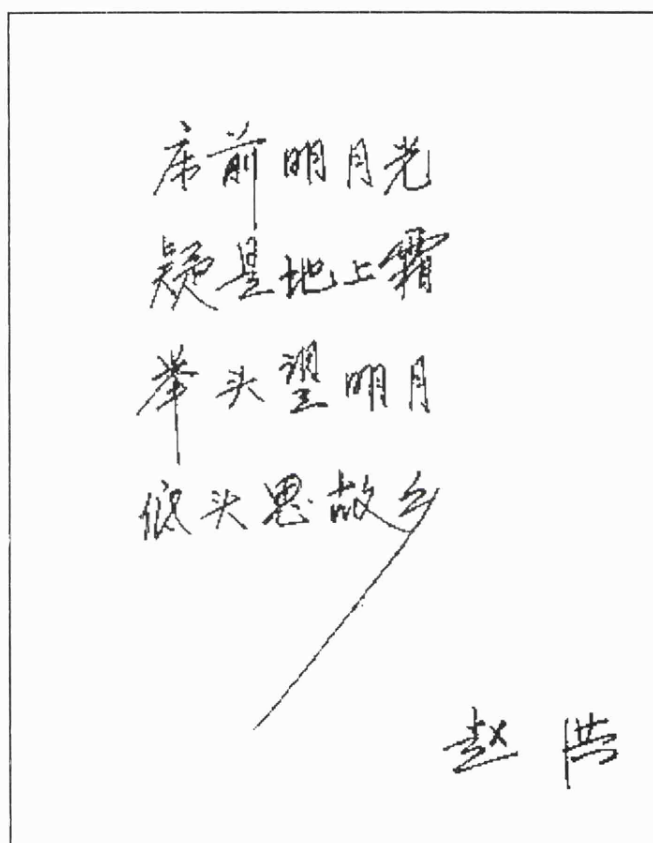 床前明月光
疑是地上霜
举头望明月
低头思故乡
赵洪